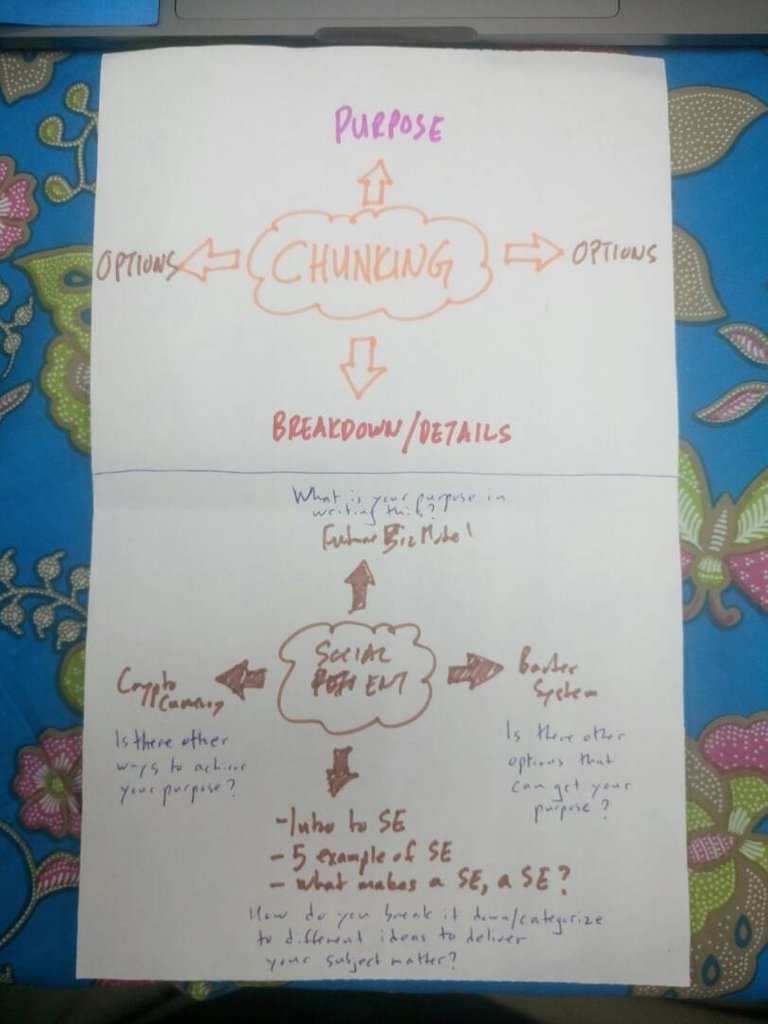 PURPOSE
OPTIONS
CHUNKING
OPTIONS
BREAKDOWN/DETAILS
What is your purpose in
writing this?
Future Biz Model
SOCIAL
Crypto
Currency
Barter
System
Is there other
ways to achieve
your purpose?
Is there other
options that
can get your
purpose?
-Intro to SE
- 5 example of SE
- What makes a SE, a SE?
How do you break it down/categorize
to different ideas to deliver
your subject matter?